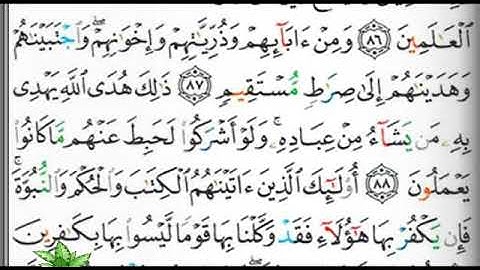 ٱلْعَٰلَمِينَ ٨٦ وَمِنْ ءَابَآئِهِمْ وَذُرِّيَّٰتِهِمْ وَإِخْوَٰنِهِمْ ۖ وَٱجْتَبَيْنَٰهُمْ
وَهَدَيْنَٰهُمْ إِلَىٰ صِرَٰطٍ مُّسْتَقِيمٍ ٨٧ ذَٰلِكَ هُدَى ٱللَّهِ يَهْدِى
بِهِۦ مَن يَشَآءُ مِنْ عِبَادِهِۦ ۚ وَلَوْ أَشْرَكُوا۟ لَحَبِطَ عَنْهُم مَّا كَانُوا۟
يَعْمَلُونَ ٨٨ أُو۟لَٰٓئِكَ ٱلَّذِينَ ءَاتَيْنَٰهُمُ ٱلْكِتَٰبَ وَٱلْحُكْمَ وَٱلنُّبُوَّةَ ۚ
فَإِن يَكْفُرْ بِهَا هَٰٓؤُلَآءِ فَقَدْ وَكَّلْنَا بِهَا قَوْمًا لَّيْسُوا۟ بِهَا بِكَٰفِرِينَ